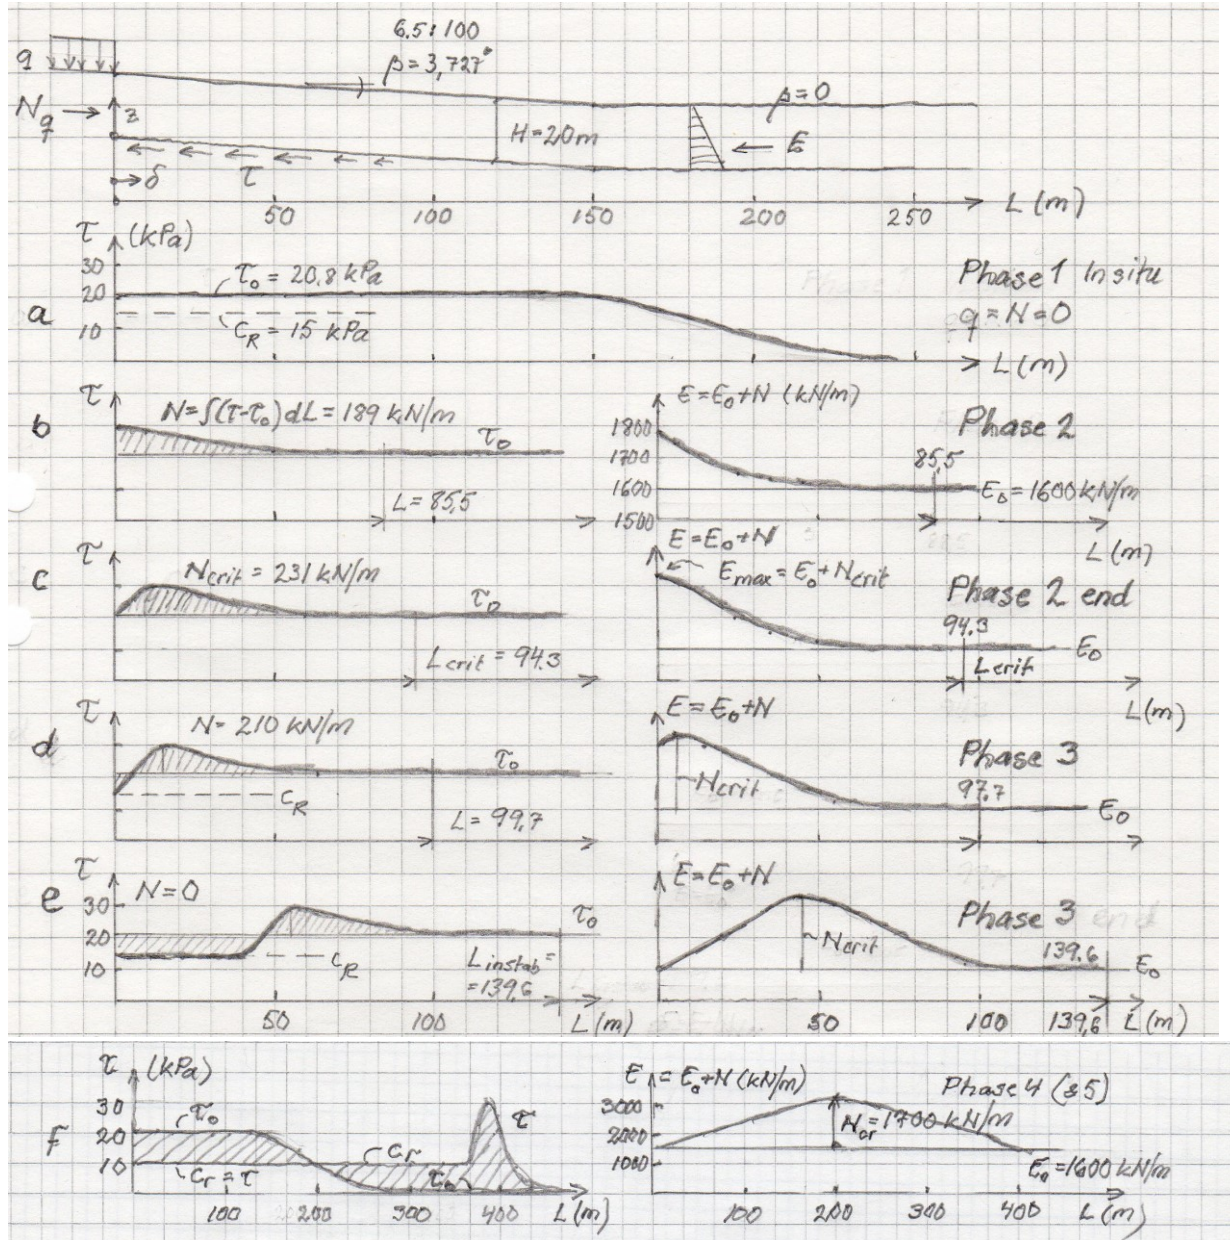 6.5:100
q
β=3,727°
β=0
N_q
z
H=20m
E
δ
τ
50 100 150 200 250 L(m)
τ (kPa)
30
20
10
a
τ₀ = 20,8 kPa
C_R = 15 kPa
Phase 1 In situ
q = N = 0
L(m)
τ
b
N=∫(τ-τ₀)dL = 189 kN/m
τ₀
L=85,5
E=E₀+N (kN/m)
1800
1700
1600
1500
Phase 2
85,5
E₀=1600kN/m
L(m)
τ
c
N_crit = 231 kN/m
τ₀
L_crit = 94.3
E=E₀+N
E_max=E₀+N_crit
Phase 2 end
94.3
E₀
L_crit
L(m)
τ
d
N= 210 kN/m
τ₀
C_R
L=99,7
E=E₀+N
Phase 3
N_crit
97.7
E₀
τ
e
N=0
30
20
10
τ₀
C_R
L_instab =
=139,6
50 100 L(m)
E=E₀+N
Phase 3 end
N_crit
139.6
E₀
50 100 139,6 L(m)
τ (kPa)
F
30
20
10
τ₀
C_r = τ
C_r
τ
τ₀
100 200 300 400 L(m)
E = E₀+N (kN/m)
Phase 4 (&5)
3000
2000
1000
N_cr=1700kN/m
E₀=1600kN/m
100 200 300 400 L(m)